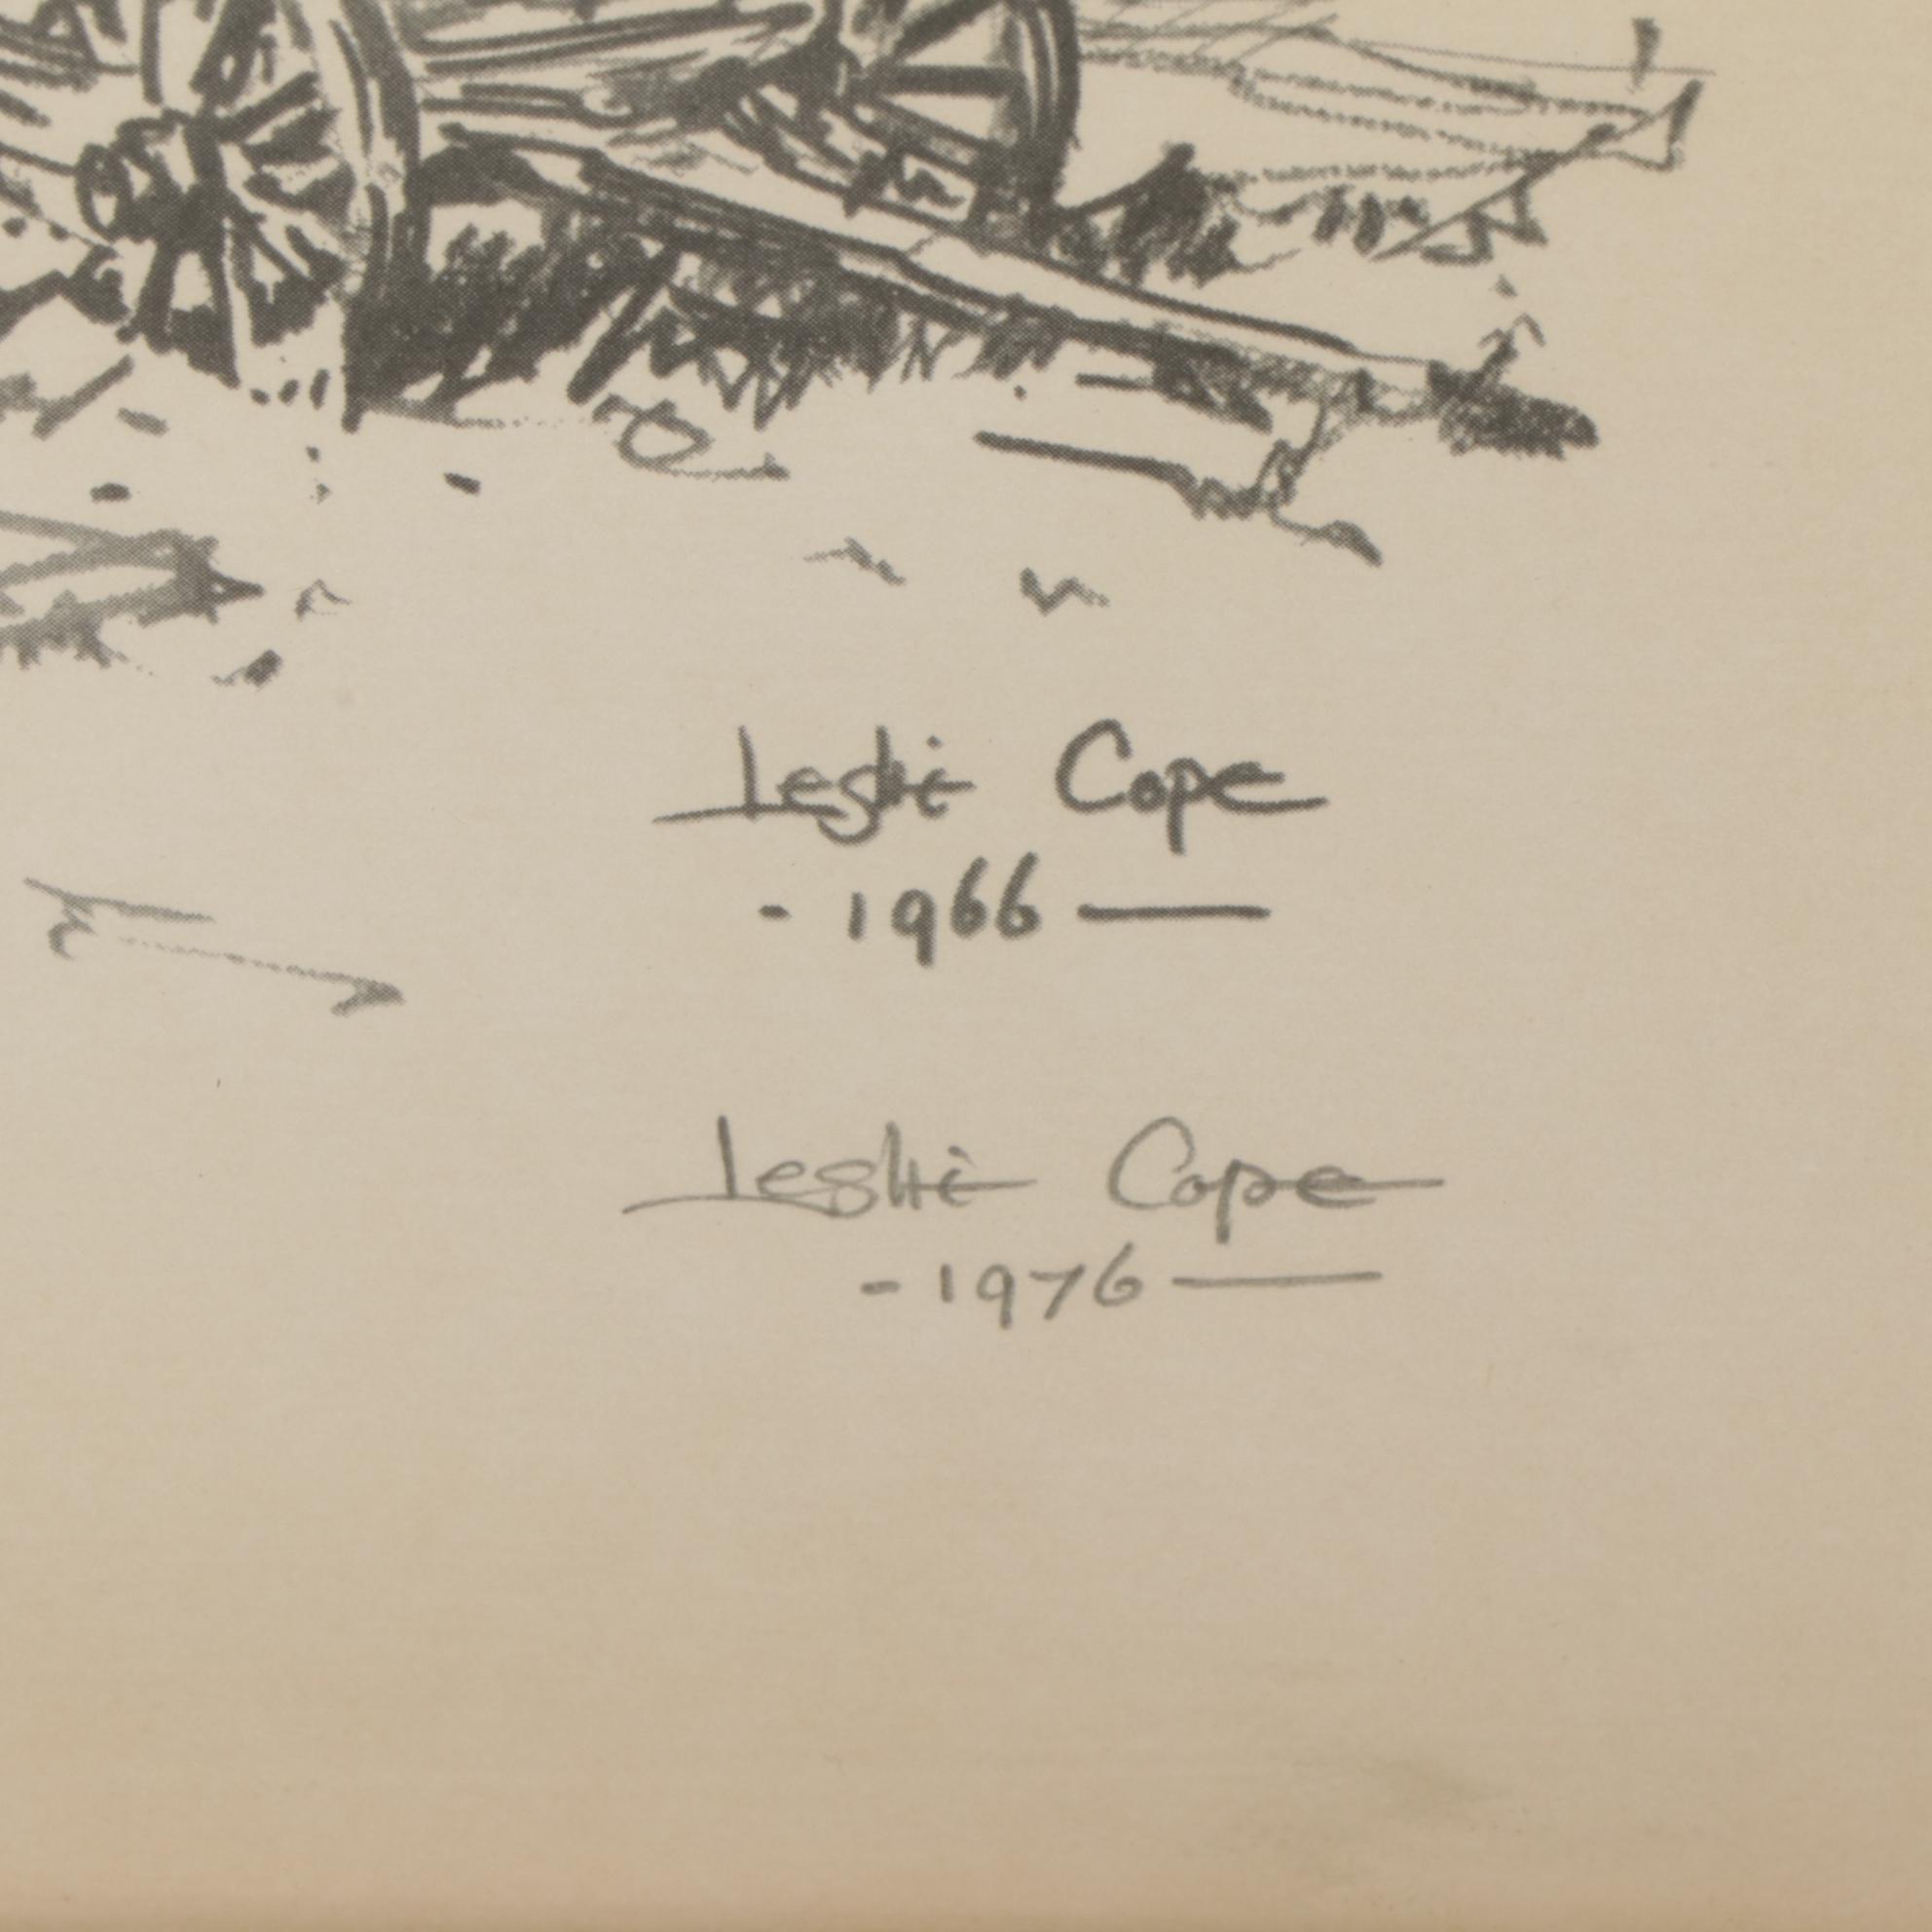 Leslie Cope
- 1966 —
Leslie Cope
- 1976 —